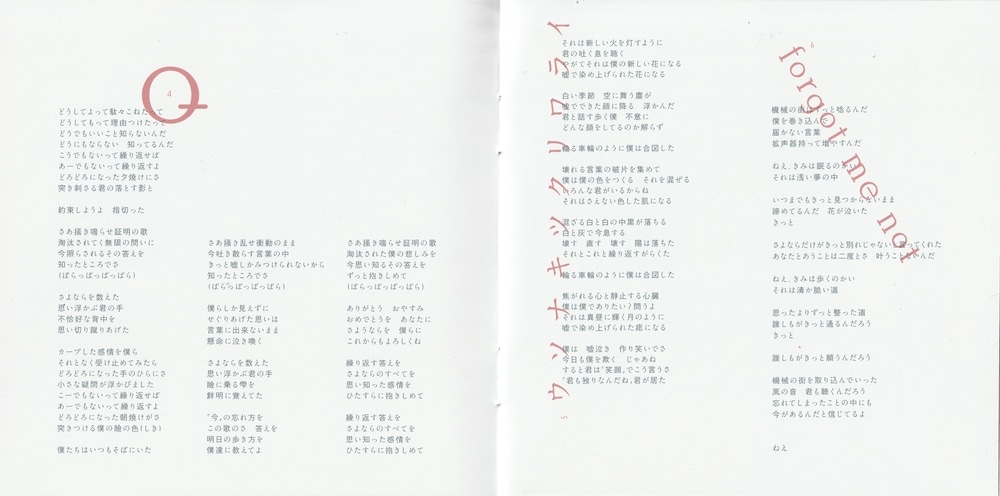 Q
4
どうしてよって駄々こねたって
どうしてもって理由つけたって
どうでもいいこと知らないんだ
どうにもならない　知ってるんだ
こうでもないって繰り返せば
あーでもないって繰り返すよ
どろどろになった夕焼けにさ
突き刺さる君の落とす影と
約束しようよ　指切った
さあ掻き鳴らせ証明の歌
淘汰されてく無限の問いに
今照らされるその答えを
知ったところでさ
(ぱらっぱっぱっぱら)
さよならを数えた
思い浮かぶ君の手
不恰好な背中を
思い切り蹴りあげた
カーブした感情を僕ら
それとなく受け止めてみたら
どろどろになった手のひらにさ
小さな疑問が浮かびました
こーでもないって繰り返せば
あーでもないって繰り返すよ
どろどろになった朝焼けがさ
突きつける僕の瞼の色(しき)
僕たちはいつもそばにいた
さあ掻き乱せ衝動のまま
今吐き散らす言葉の中
きっと嘘しかみつけられないから
知ったところでさ
(ぱらっぱっぱっぱら)
僕らしか見えずに
せぐりあげた思いは
言葉に出来ないまま
懸命に泣き喚く
さよならを数えた
思い浮かぶ君の手
瞼に乗る雫を
鮮明に覚えてた
「今」の忘れ方を
この歌のさ　答えを
明日の歩き方を
僕達に教えてよ
さあ掻き鳴らせ証明の歌
淘汰された僕の悲しみを
今思い知るその答えを
ずっと抱きしめて
(ぱらっぱっぱっぱら)
ありがとう　おやすみ
おめでとうを　あなたに
さようならを　僕らに
これからもよろしくね
繰り返す答えを
さよならのすべてを
思い知った感情を
ひたすらに抱きしめて
繰り返す答えを
さよならのすべてを
思い知った感情を
ひたすらに抱きしめて
ウソナキツクリワライ
5
それは新しい火を灯すように
君の吐く息を聴く
やがてそれは僕の新しい花になる
嘘で染め上げられた花になる
白い季節　空に舞う塵が
嘘でできた顔に降る　浮かんだ
君と話す歩く僕　不意に
どんな顔をしてるのか解らず
輪る車輪のように僕は合図した
壊れる言葉の破片を集めて
僕は僕の色をつくる　それを混ぜる
いろんな君がいるからね
それはさえない色した肌になる
混ざる白と白の中黒が落ちる
白と灰で今息する
壊す　直す　壊す　陽は落ちた
それとこれと繰り返すがらくた
輪る車輪のように僕は合図した
焦がれる心と静止する心臓
僕は僕でありたい？問うよ
それは真昼に輝く月のように
嘘で染め上げられた痣になる
僕は　嘘泣き　作り笑いでさ
今日も僕を欺く　じゃあね
すると君は“笑顔„でこう言うさ
「君も独りなんだね」君が居た
6
forgot me not
機械の街はずっと唸るんだ
僕を巻き込んで
届かない言葉
拡声器持って増やすんだ
ねえ、きみは眠るのかい
それは浅い夢の中
いつまでもきっと見つからないまま
諦めてるんだ　花が泣いた
きっと
さよならだけがきっと別れじゃないと言ってくれた
あなたとあうことは二度とさ　叶うことないんだ
ねえ、きみは歩くのかい
それは清か脆い道
思ったよりずっと整った道
誰しもがきっと通るんだろう
きっと
誰しもがきっと願うんだろう
機械の街を取り込んでいった
風の音　君も聴くんだろう
忘れてしまったことの中にも
今があるんだと信じてるよ
ねえ